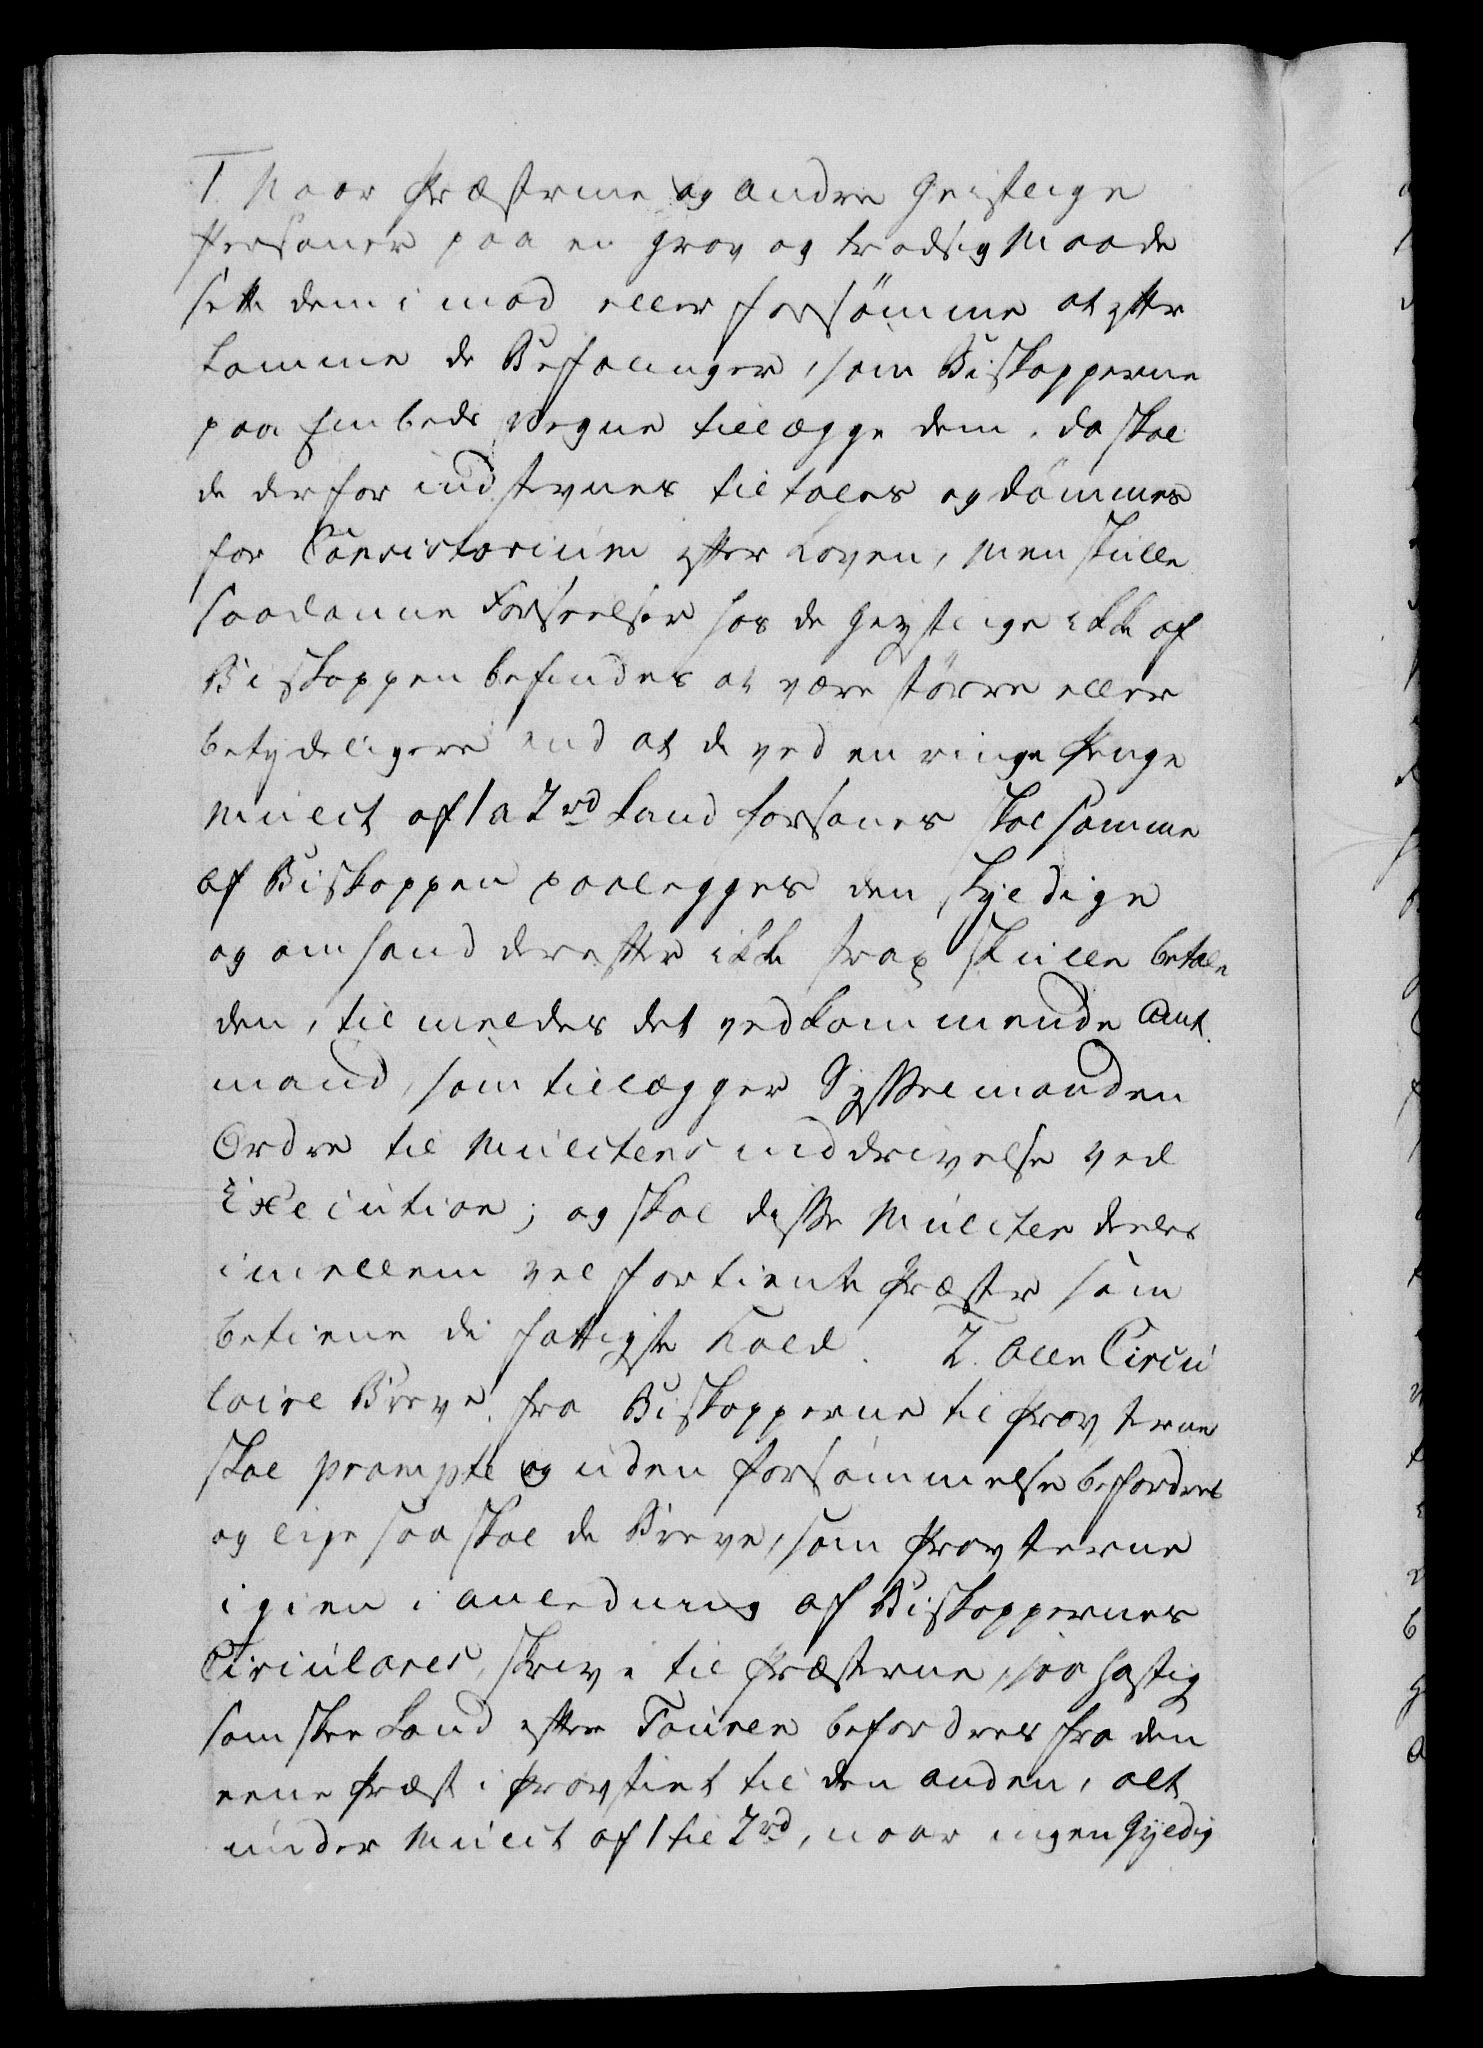 1. Naar Præsterne og andre Geistlige
Personer paa en grov og trodsig Maade
sette dem imod eller forsömme at efter
komme de Befalinger, som Biskopperne
paa Embeds Vegne tillægge dem, da skal
de derfor indstevnes tiltales og dömmes
for Consistorium efter Loven, men skulle
saadanne Forseelser hos de Geystlige ikke af
Biskoppen befindes at være större eller
betydeligere end at de ved en ringe Penge
Mulct af 1 a 2 rd kand forsones skal samme
af Biskoppen paalegges den skyldige
og om hand derefter ikke strax skulle betale
den, tilmeldes det vedkommende Amt
mand, som tillægger Sysselmanden
Ordre til Mulctens inddrivelse ved
Execution; og skal disse Mulcter deeles
imellem vel fortiente Præster som
betiene de fattigste Kald. 2. Alle Circu
laire Breve fra Biskopperne til Provsterne
skal prompte og uden forsömmelse befordres
og lige saa skal de Breve, som Provsterne
igien i anledning af Biskoppernes
Circulaires, skrive til Præsterne, saa hastig
som skee kand efter Touren befordres fra den
eene Præst i Provstiet til den anden, alt
under Mulct af 1 til 2 rd, naar ingen Gyldig